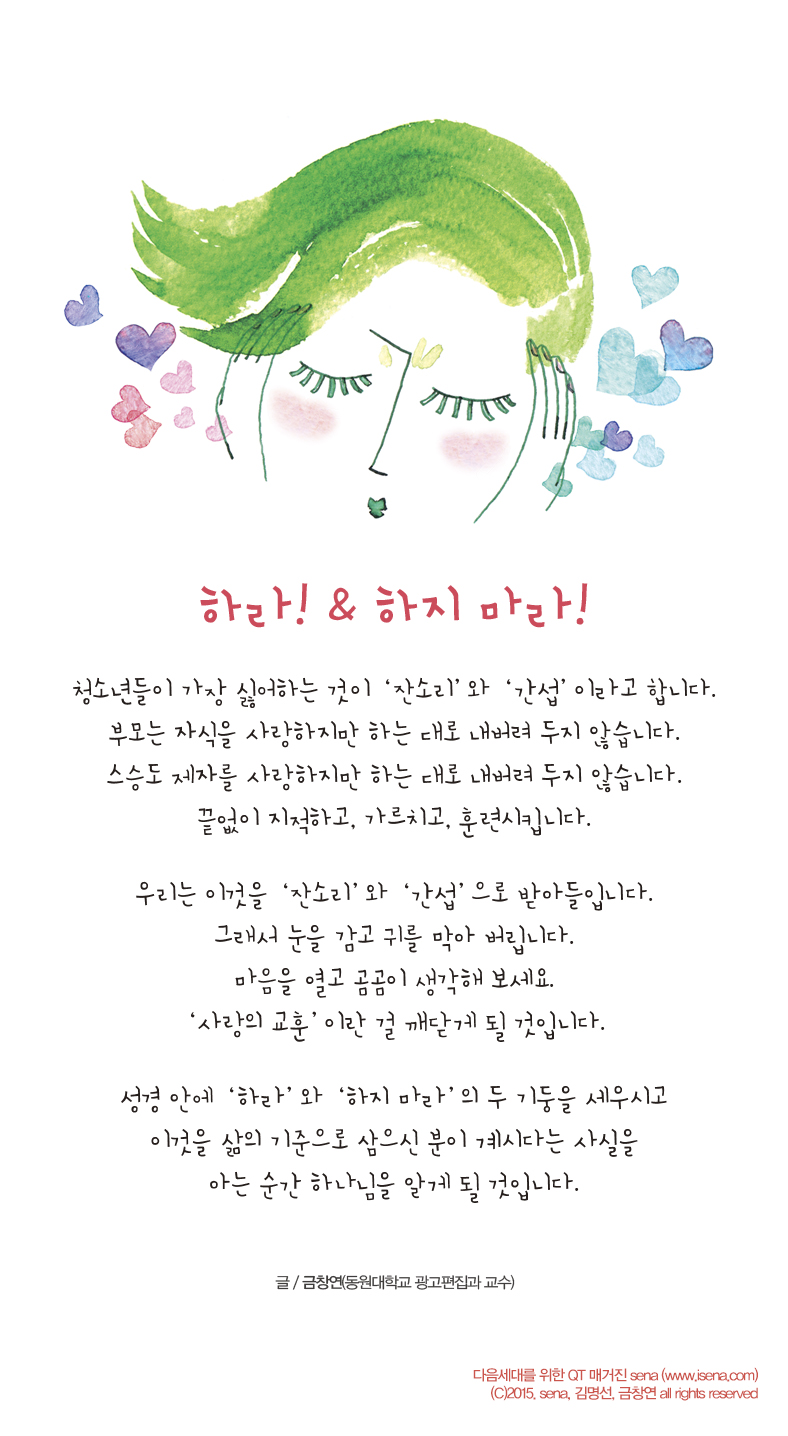 하라! & 하지 마라!
청소년들이 가장 싫어하는 것이 ‘잔소리’와 ‘간섭’이라고 합니다.
부모는 자식을 사랑하지만 하는 대로 내버려 두지 않습니다.
스승도 제자를 사랑하지만 하는 대로 내버려 두지 않습니다.
끝없이 지적하고, 가르치고, 훈련시킵니다.
우리는 이것을 ‘잔소리’와 ‘간섭’으로 받아들입니다.
그래서 눈을 감고 귀를 막아 버립니다.
마음을 열고 곰곰이 생각해 보세요.
‘사랑의 교훈’이란 걸 깨닫게 될 것입니다.
성경 안에 ‘하라’와 ‘하지 마라’의 두 기둥을 세우시고
이것을 삶의 기준으로 삼으신 분이 계시다는 사실을
아는 순간 하나님을 알게 될 것입니다.
글 / 금창연(동원대학교 광고편집과 교수)
다음세대를 위한 QT 매거진 sena (www.isena.com)
(C)2015, sena, 김명선, 금창연 all rights reserved